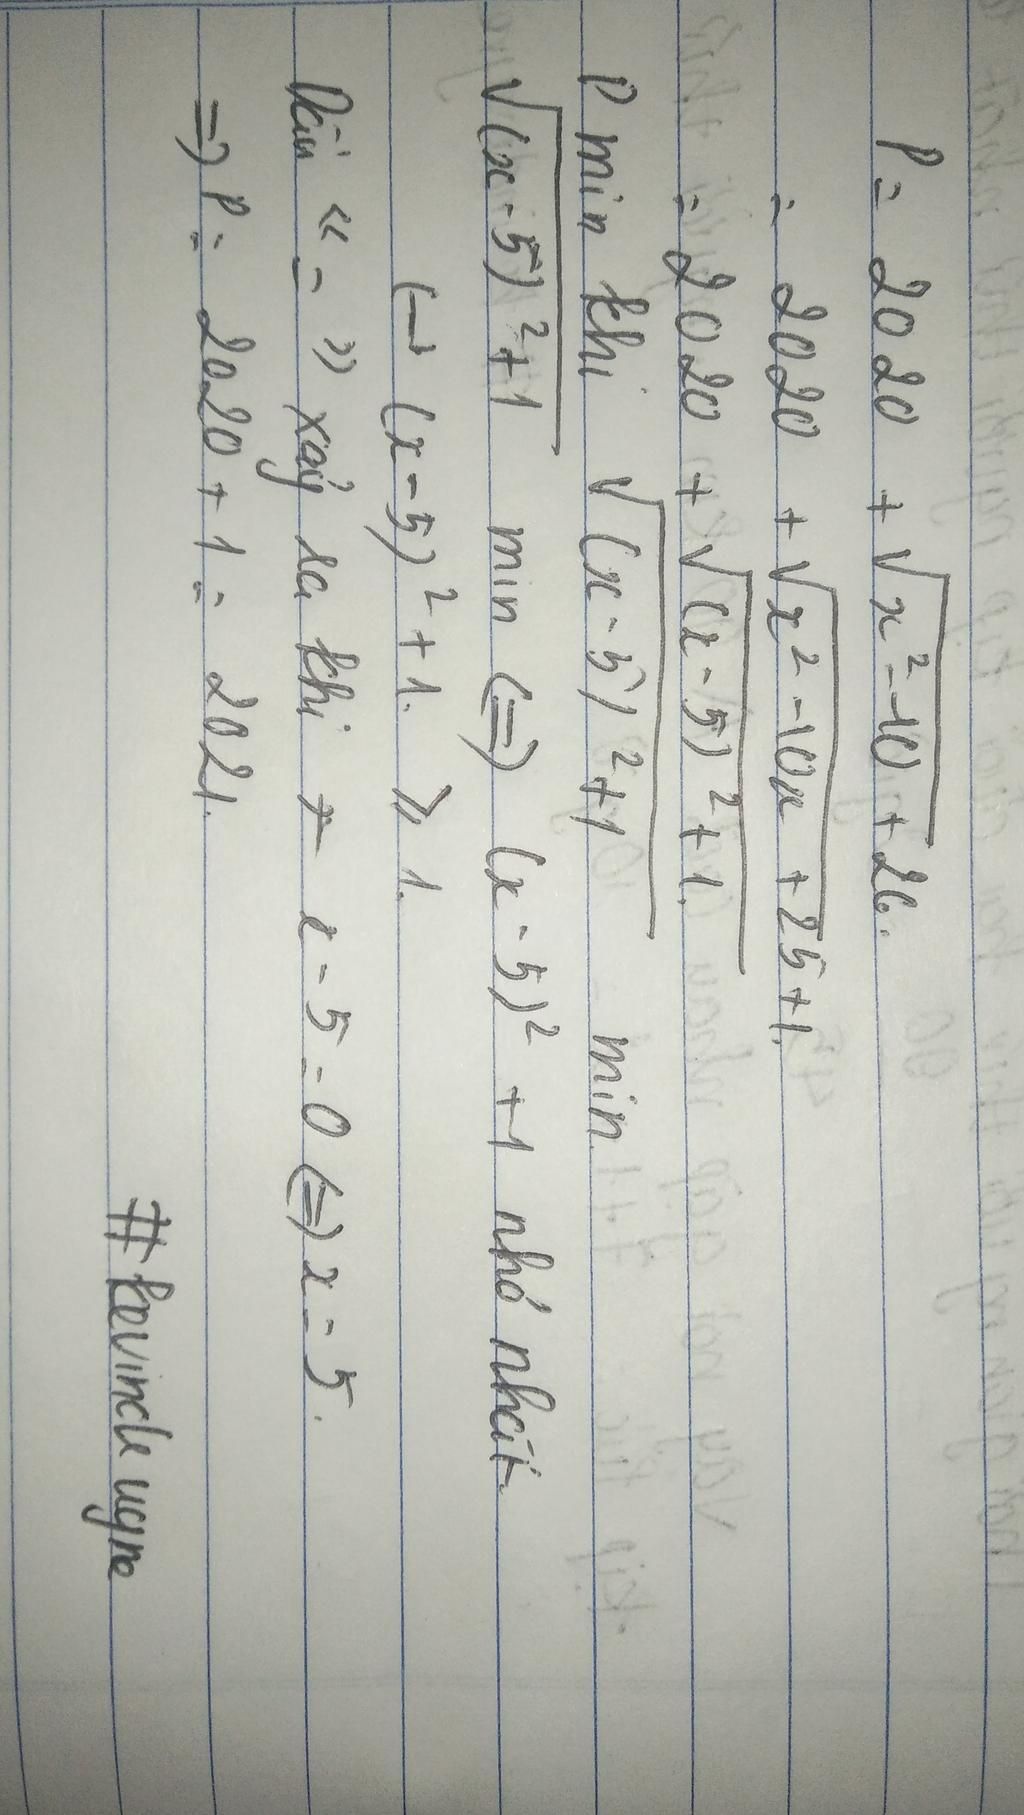 P = 2020 + √x² - 10 + 26.
= 2020 + √x² - 10x + 25 + 1.
= 2020 + √(x - 5)² + 1.
P min khi √(x - 5)² + 1 min
√(x - 5)² + 1 min (=) (x - 5)² + 1 nhỏ nhất.
(x - 5)² + 1. ≥ 1.
Dấu « = » xảy ra khi x - 5 = 0 (=) x = 5.
=> P = 2020 + 1 = 2021.